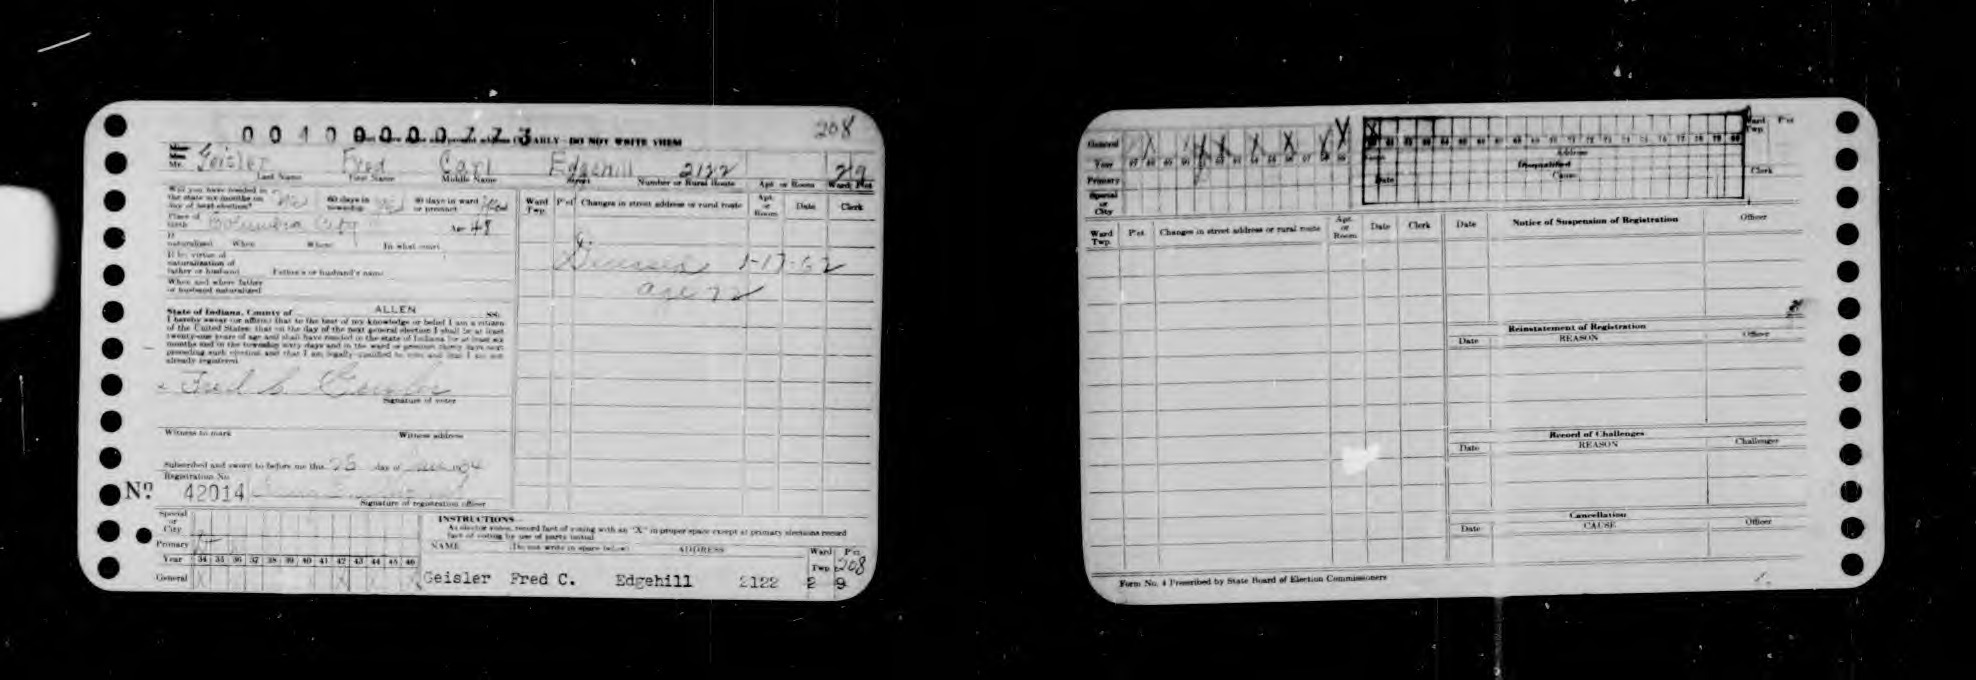 208
0 0 4 0 0 0 0 0 7 7 3 EARLY - DO NOT WRITE THEM
Mr. Geisler Fred Carl Edgehill 2122 2 9
Last Name First Name Middle Name Street Number or Rural Route Apt or Room Ward Pct
Will you have resided in
the state six months on 60 days in 30 days in ward
day of next election? township or precinct
Place of
birth Columbia City Age 48
If
naturalized When Where In what court
If by virtue of
naturalization of
father or husband Father's or husband's name
When and where father
or husband naturalized
State of Indiana, County of ALLEN SS:
I hereby swear (or affirm) that to the best of my knowledge or belief I am a citizen
of the United States; that on the day of the next general election I shall be at least
twenty-one years of age and shall have resided in the state of Indiana for at least six
months and in the township sixty days and in the ward or precinct thirty days next
preceding such election and that I am legally qualified to vote and that I am not
already registered.
Fred C. Geisler
Signature of voter
Witness to mark Witness address
Subscribed and sworn to before me this 28 day of
Registration No.
No. 42014
Signature of registration officer
Special
or
City
Primary
Year 34 35 36 37 38 39 40 41 42 43 44 45 46
General X X X
Ward Twp. P'ct Changes in street address or rural route Apt. or Room Date Clerk
Deceased 1-17-62
age 72
INSTRUCTIONS
As elector votes, record fact of voting with an "X" in proper space except at primary elections record
fact of voting by use of party initial
NAME (Do not write in space below) ADDRESS Ward Twp. P'ct 208
Geisler Fred C. Edgehill 2122 2 9
General X X X X X X X
Year 47 48 49 50 51 52 53 54 55 56 57 58 59
Primary
Special
or
City
Address
Disqualified
Cause
Date
Ward Twp. P'ct
Clerk
Ward Twp. P'ct Changes in street address or rural route Apt. or Room Date Clerk
Date Notice of Suspension of Registration Officer
Reinstatement of Registration
Date REASON Officer
Record of Challenges
Date REASON Challenger
Cancellation
Date CAUSE Officer
Form No. 4 Prescribed by State Board of Election Commissioners